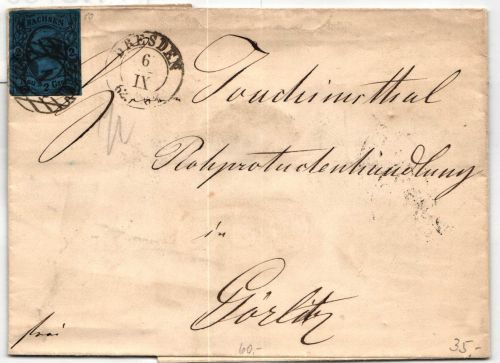 SACHSEN
2
DRESDEN
6
IX
Joachimsthal
Rohproductenhandlung
in
Görlitz
frei
60,-
35,-